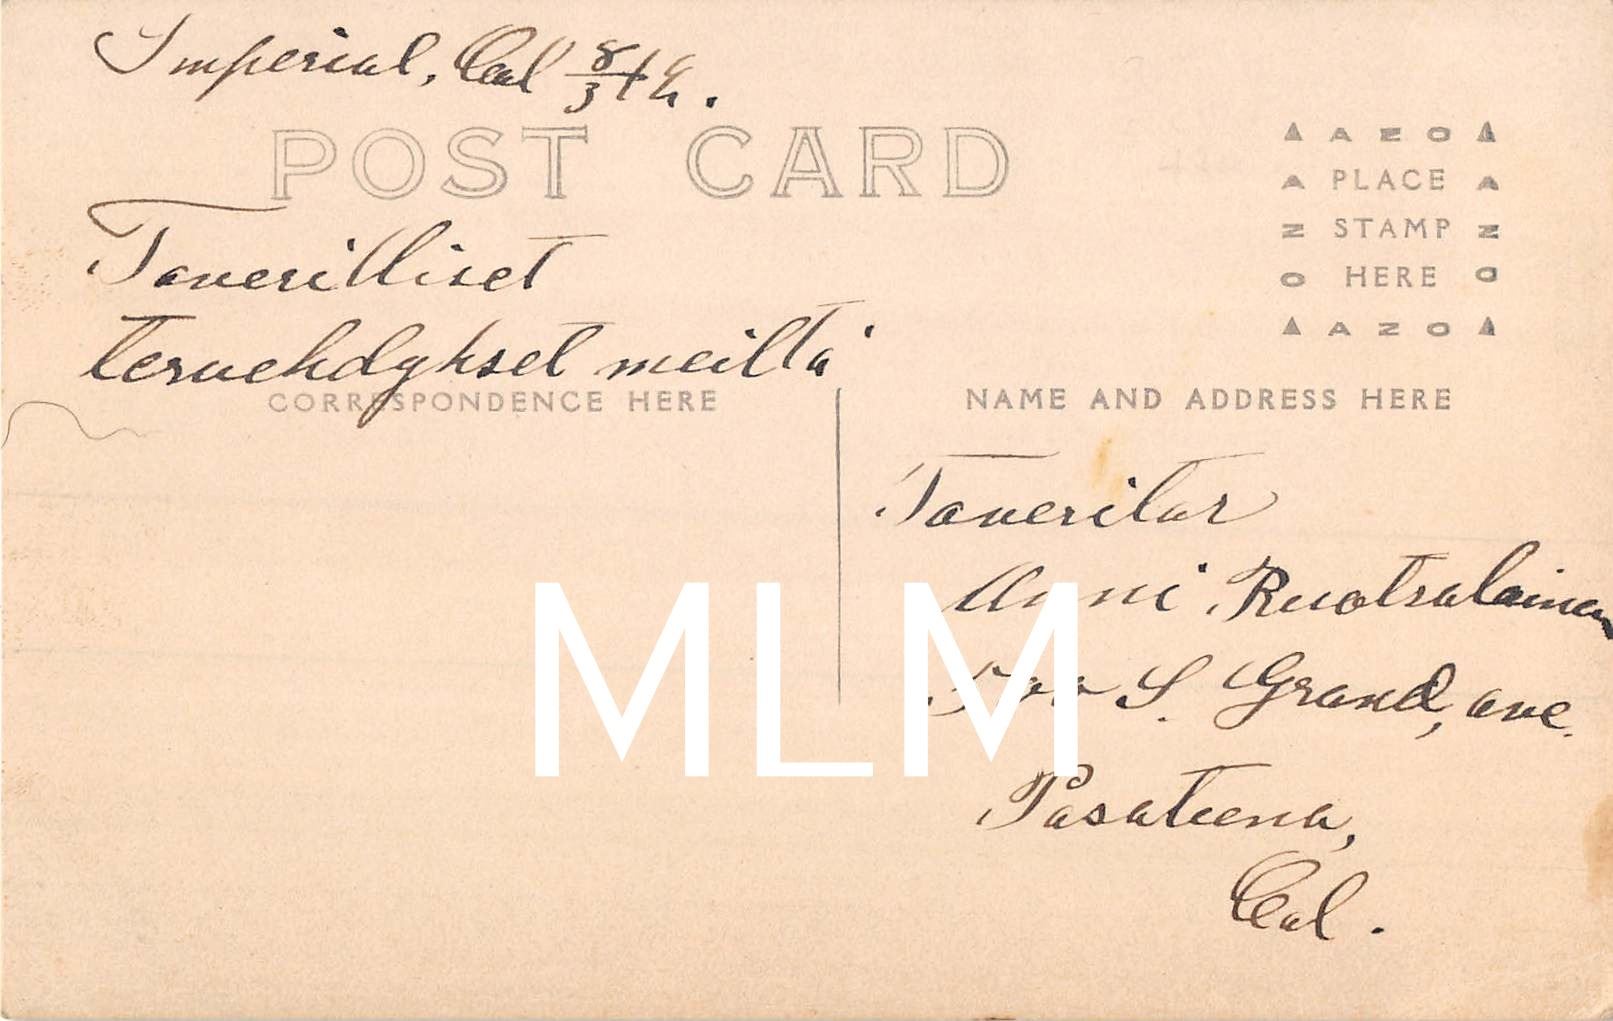 Imperial, Cal 8/3 14.
POST CARD
Toverilliset
tervehdykset meiltä
CORRESPONDENCE HERE
AZO
PLACE
STAMP
HERE
AZO
NAME AND ADDRESS HERE
Toveritar
Anni Ruotsalainen
500 S. Grand, ave.
Pasateena,
Cal.
MLM